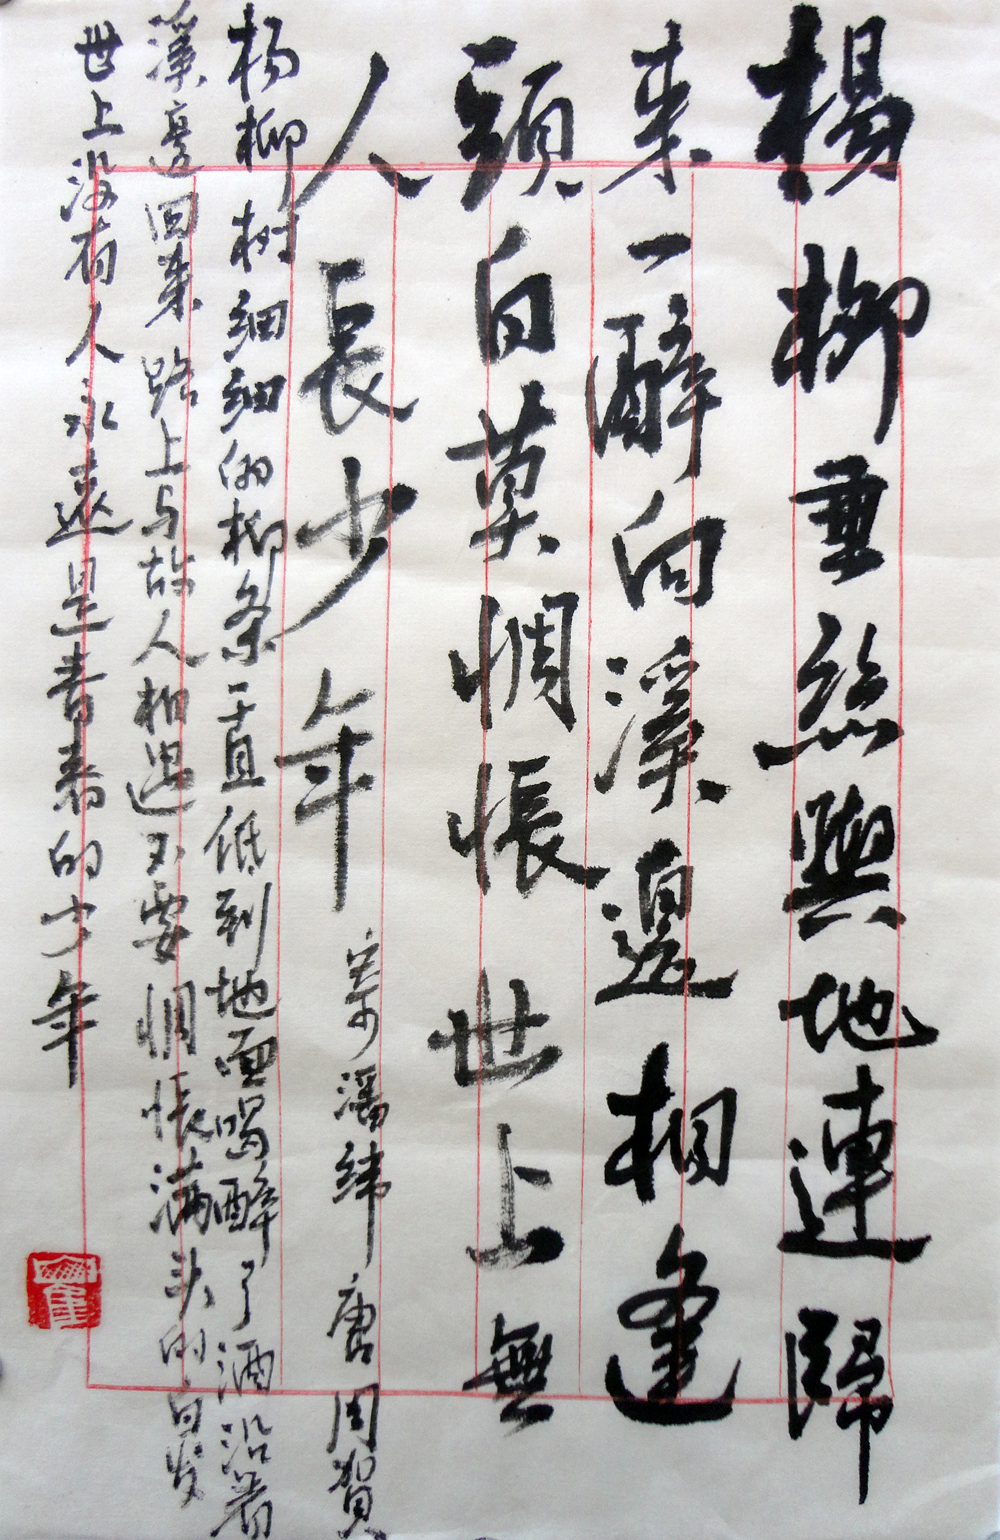 楊柳垂絲與地連歸
來一醉向溪邊相逢
頭白莫惆悵世上無
人長少年
寄潘緯唐周賀
杨柳树细细的柳条一直低到地面喝醉了酒沿着
溪邊回来路上与故人相遇不要惆怅满头的白发
世上没有人永遠是青春的少年